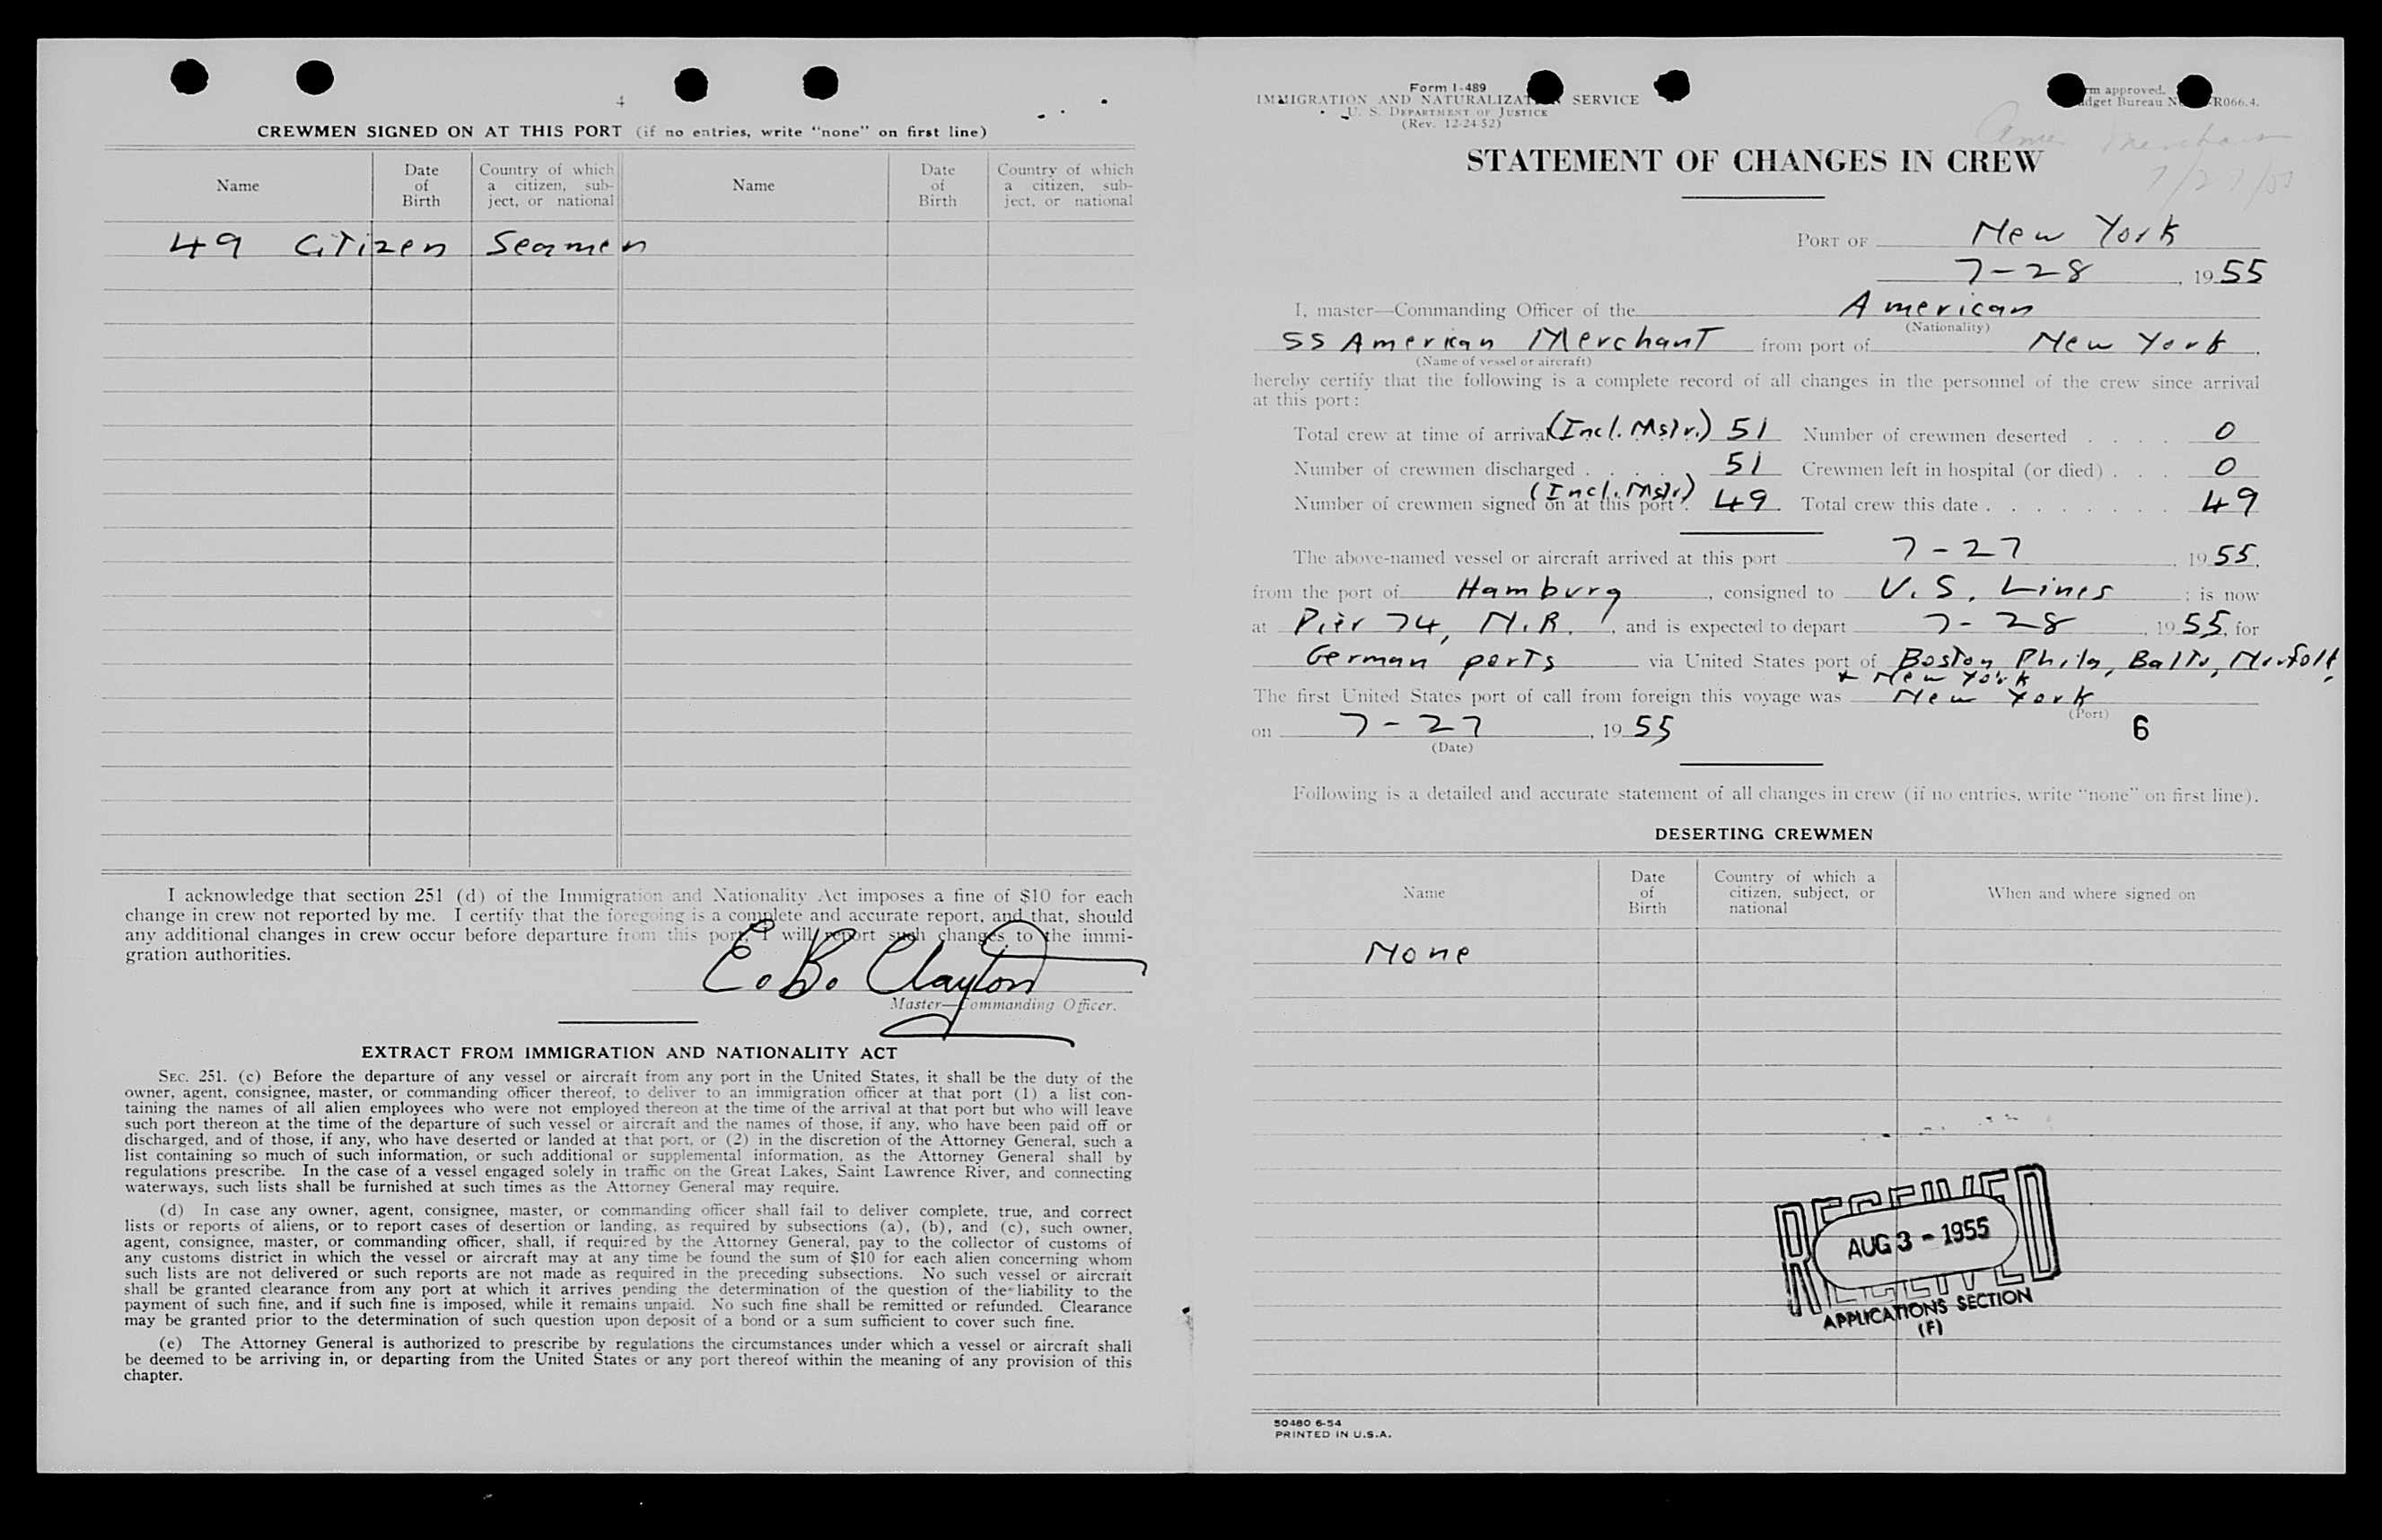 4
CREWMEN SIGNED ON AT THIS PORT (if no entries, write "none" on first line)
Name
Date
of
Birth
Country of which
a citizen, sub-
ject, or national
Name
Date
of
Birth
Country of which
a citizen, sub-
ject, or national
49 Citizen Seamen
I acknowledge that section 251 (d) of the Immigration and Nationality Act imposes a fine of $10 for each
change in crew not reported by me. I certify that the foregoing is a complete and accurate report, and that, should
any additional changes in crew occur before departure from this port, I will report such changes to the immi-
gration authorities.
E. B. Clayton
Master—Commanding Officer.
EXTRACT FROM IMMIGRATION AND NATIONALITY ACT
SEC. 251. (c) Before the departure of any vessel or aircraft from any port in the United States, it shall be the duty of the
owner, agent, consignee, master, or commanding officer thereof, to deliver to an immigration officer at that port (1) a list con-
taining the names of all alien employees who were not employed thereon at the time of the arrival at that port but who will leave
such port thereon at the time of the departure of such vessel or aircraft and the names of those, if any, who have been paid off or
discharged, and of those, if any, who have deserted or landed at that port, or (2) in the discretion of the Attorney General, such a
list containing so much of such information, or such additional or supplemental information, as the Attorney General shall by
regulations prescribe. In the case of a vessel engaged solely in traffic on the Great Lakes, Saint Lawrence River, and connecting
waterways, such lists shall be furnished at such times as the Attorney General may require.
(d) In case any owner, agent, consignee, master, or commanding officer shall fail to deliver complete, true, and correct
lists or reports of aliens, or to report cases of desertion or landing, as required by subsections (a), (b), and (c), such owner,
agent, consignee, master, or commanding officer, shall, if required by the Attorney General, pay to the collector of customs of
any customs district in which the vessel or aircraft may at any time be found the sum of $10 for each alien concerning whom
such lists are not delivered or such reports are not made as required in the preceding subsections. No such vessel or aircraft
shall be granted clearance from any port at which it arrives pending the determination of the question of the liability to the
payment of such fine, and if such fine is imposed, while it remains unpaid. No such fine shall be remitted or refunded. Clearance
may be granted prior to the determination of such question upon deposit of a bond or a sum sufficient to cover such fine.
(e) The Attorney General is authorized to prescribe by regulations the circumstances under which a vessel or aircraft shall
be deemed to be arriving in, or departing from the United States or any port thereof within the meaning of any provision of this
chapter.
Form I-489
IMMIGRATION AND NATURALIZATION SERVICE
U. S. DEPARTMENT OF JUSTICE
(Rev. 12-24-52)
approved.
Bureau R066.4.
Amer Merchant
STATEMENT OF CHANGES IN CREW
PORT OF New York
7-28, 1955
I, master—Commanding Officer of the American
(Nationality)
SS American Merchant from port of New York,
(Name of vessel or aircraft)
hereby certify that the following is a complete record of all changes in the personnel of the crew since arrival
at this port:
Total crew at time of arrival (Incl. Mstr.) 51 Number of crewmen deserted . . . . 0
Number of crewmen discharged . . . . . 51 Crewmen left in hospital (or died) . . . 0
(Incl. Mstr)
Number of crewmen signed on at this port . 49 Total crew this date . . . . . . . . 49
The above-named vessel or aircraft arrived at this port 7-27, 1955,
from the port of Hamburg, consigned to U.S. Lines; is now
at Pier 74, N.R., and is expected to depart 7-28, 1955, for
German ports via United States port of Boston Phila, Balto, Norfolk,
+ New York
The first United States port of call from foreign this voyage was New York
(Port)
on 7-27, 1955 6
(Date)
Following is a detailed and accurate statement of all changes in crew (if no entries, write "none" on first line).
DESERTING CREWMEN
Name
Date
of
Birth
Country of which a
citizen, subject, or
national
When and where signed on
None
RECEIVED
AUG 3 - 1955
RECEIVED
APPLICATIONS SECTION
(F)
50480 6-54
PRINTED IN U.S.A.